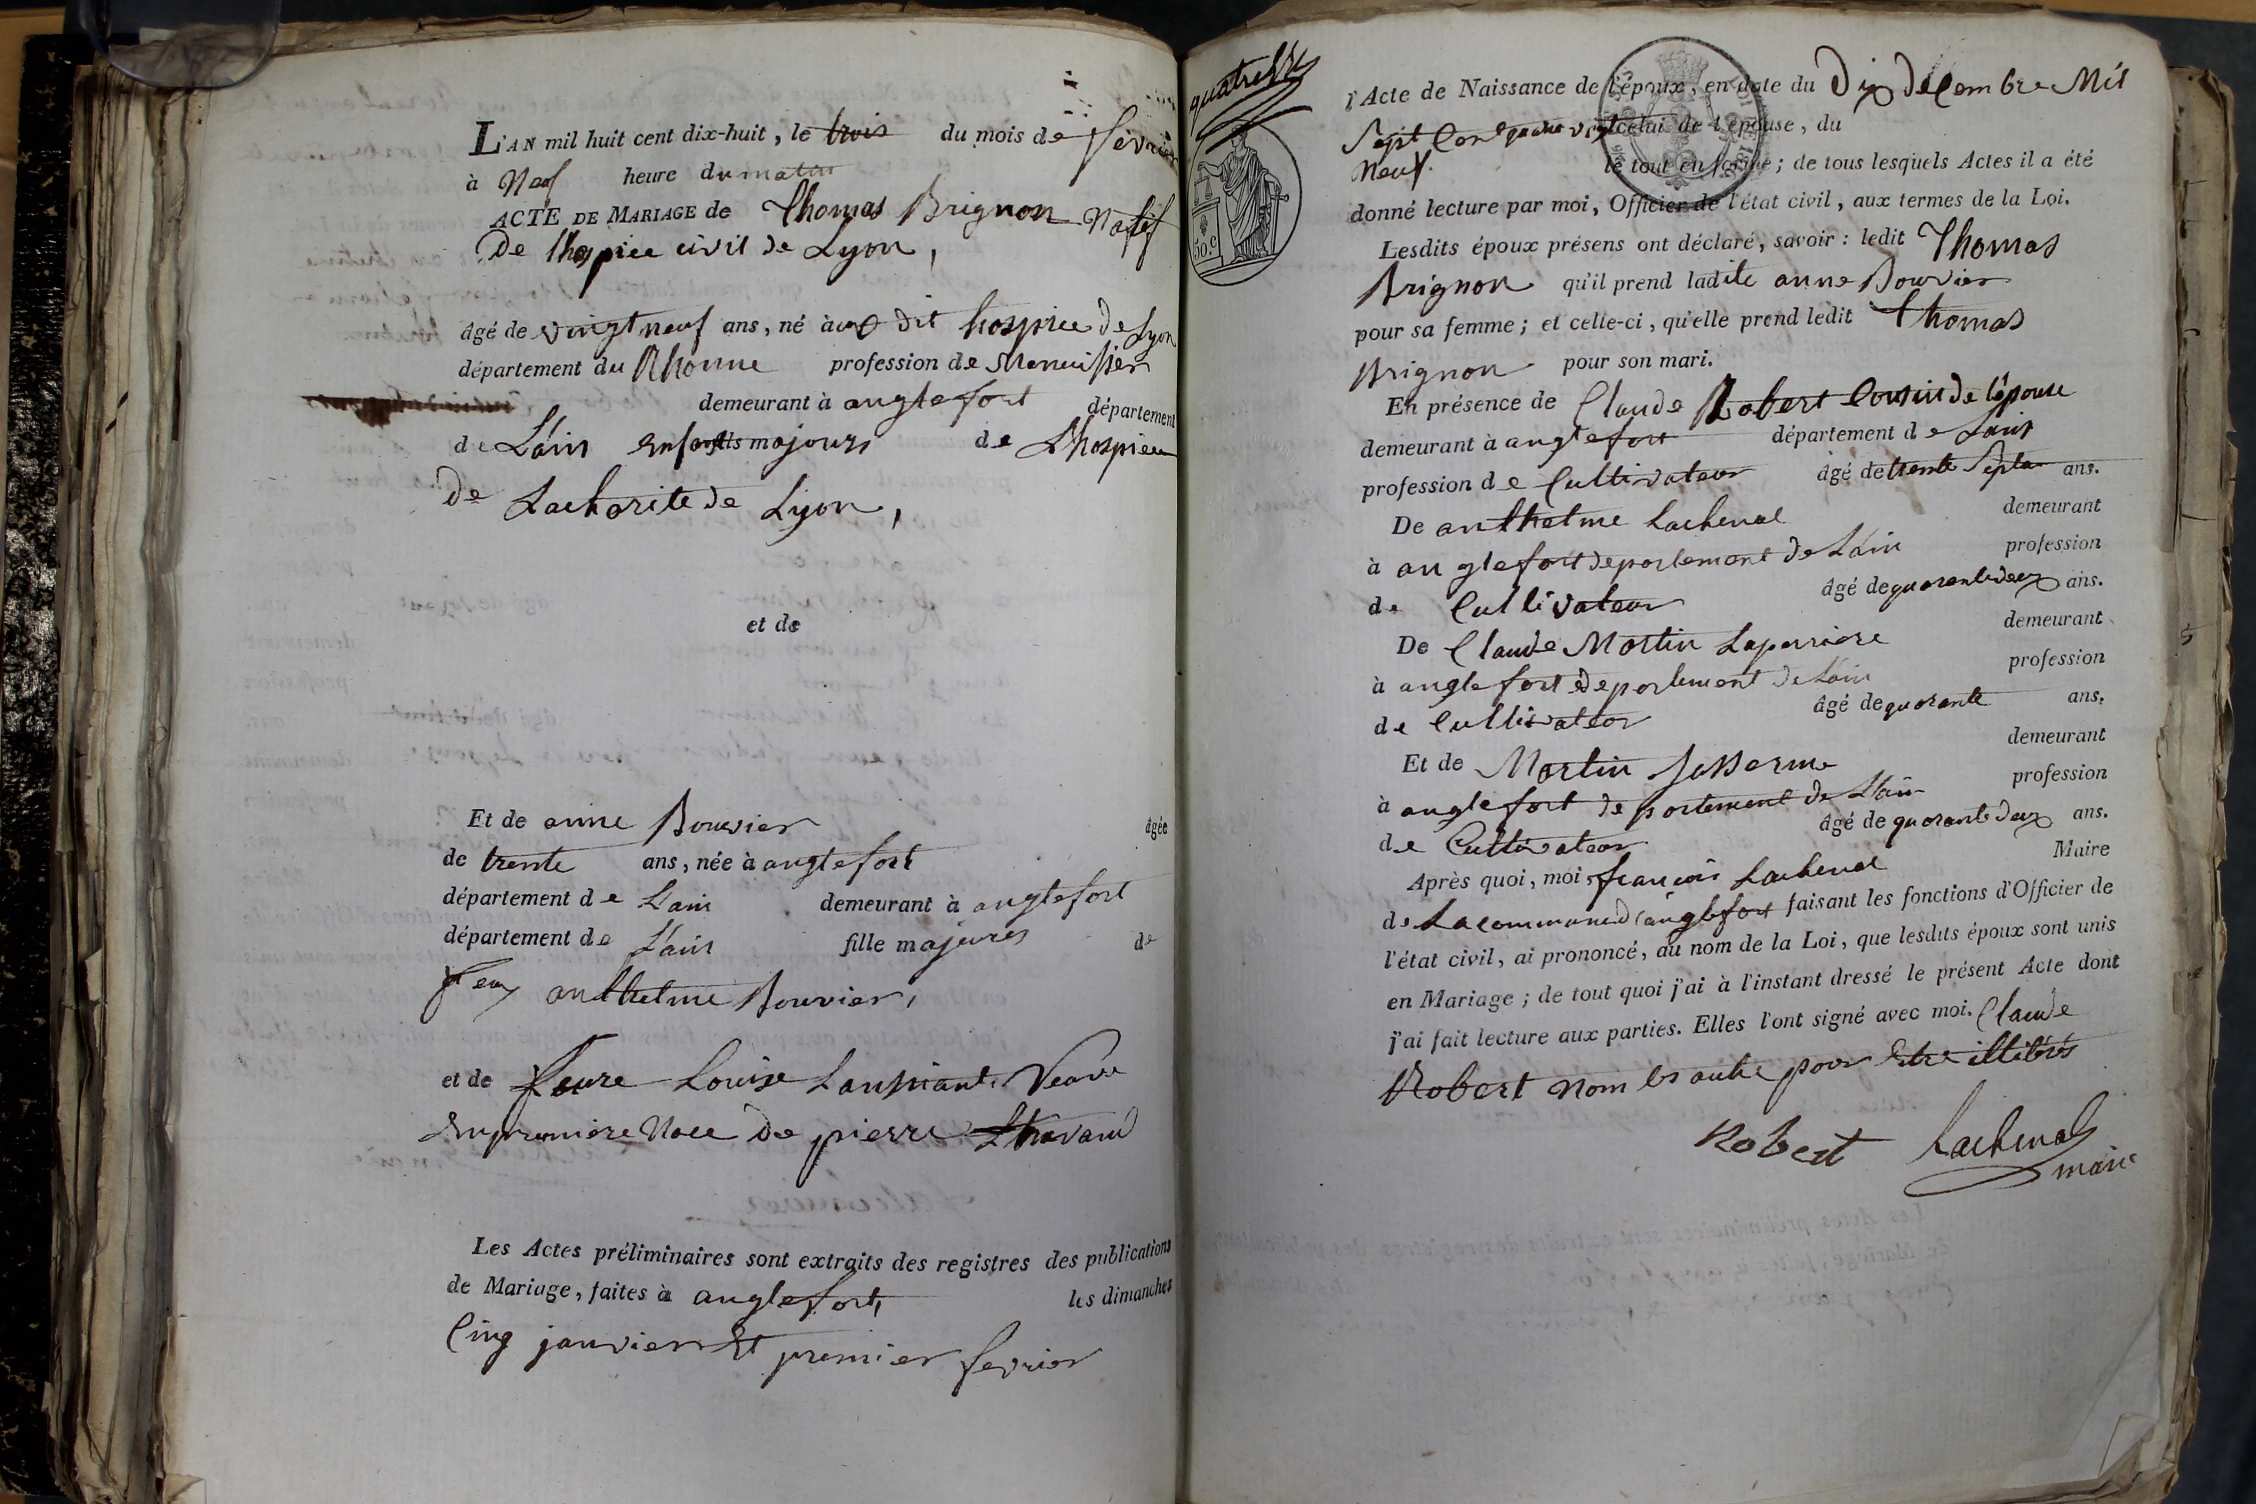 L'AN mil huit cent dix-huit, le trois du mois de fevrier
à Neuf heure du matin
ACTE DE MARIAGE de Thomas Brignon Natif
De lhospice civil de Lyon,
âgé de vingt neuf ans, né à dit hospice de Lyon
département du Rhonne profession de Menuisier
demeurant à anglefort département
de Lain enfants majeurs de Lhospice
De Lacharite de Lyon,
et de
Et de anne Bouvier âgée
de trente ans, née à anglefort
département de Lain demeurant à anglefort
département de Lain fille majeures de
feu anthelme Bouvier,
et de feure Louise Veuve
Enpremiere Noce de pierre
Les Actes préliminaires sont extraits des registres des publications
de Mariage, faites à anglefort, les dimanches
Cinq janvier Et premier fevrier
quatre
50.c
l'Acte de Naissance de l'époux, en date du Dix Décembre Mil
Sept Cent quatre vingt celui de l'épouse, du
Neuf. le tout en forme; de tous lesquels Actes il a été
donné lecture par moi, Officier de l'état civil, aux termes de la Loi.
Lesdits époux présens ont déclaré, savoir: ledit Thomas
Brignon qu'il prend ladite anne Bouvier
pour sa femme; et celle-ci, qu'elle prend ledit Thomas
Brignon pour son mari.
En présence de Claude Robert Cousin de l'épouse
demeurant à anglefort département de Lain
profession de Cultivateur âgé de trente Sept ans.
De anthelme Lachenal demeurant
à anglefort departement de Lain profession
de Cultivateur âgé de quarante deux ans.
De Claude Martin Laperriere demeurant
à anglefort departement de Lain profession
de Cultivateur âgé de quarante ans.
Et de Martin Jasserme demeurant
à anglefort departement de Lain profession
de Cultivateur âgé de quarante deux ans.
Après quoi, moi, françois Lachenal Maire
de La commune d'anglefort faisant les fonctions d'Officier de
l'état civil, ai prononcé, au nom de la Loi, que lesdits époux sont unis
en Mariage; de tout quoi j'ai à l'instant dressé le présent Acte dont
j'ai fait lecture aux parties. Elles l'ont signé avec moi. Claude
Robert nom les autre pour Etre illitérés
Robert Lachenal
maire